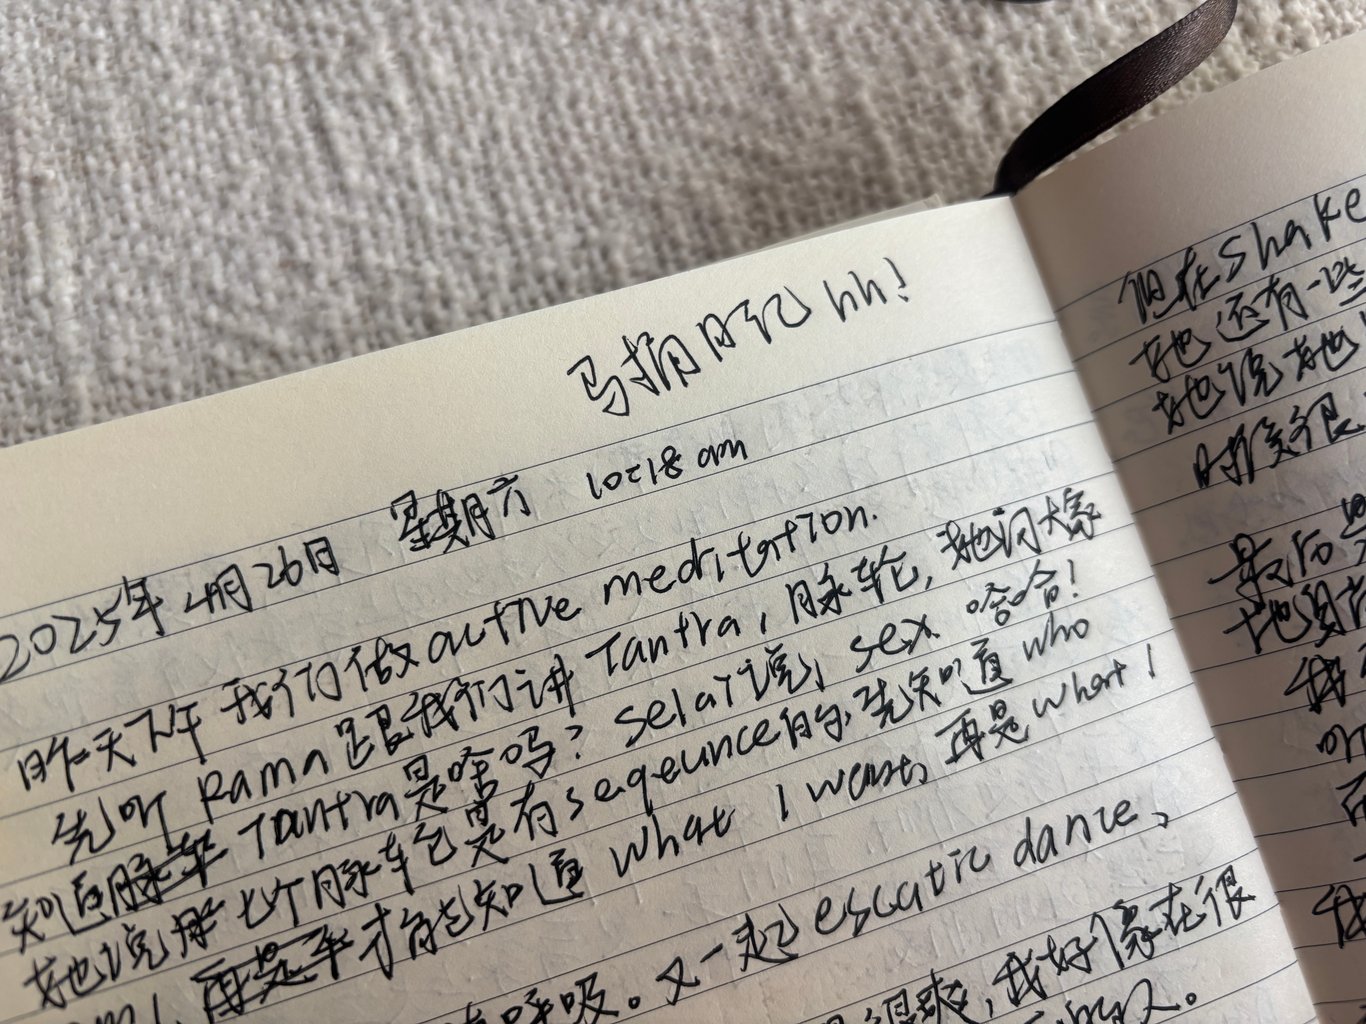 马拉日记 hh!
2025年4月26日 星期六 10:18 am
昨天下午我们做active meditation.
先听Rama跟我们讲Tantra,脉轮,她问大家
知道Tantra是啥吗? Selai说, sex 哈哈!
她说 七个脉轮它是有seqeunce的,先知道 who
才能知道 what I want, 再是what!
呼吸。又一起escatic dance、
很爽,我好像在很
但在shake
她还有一些
她说她
时候很
最后
她
我
听
我